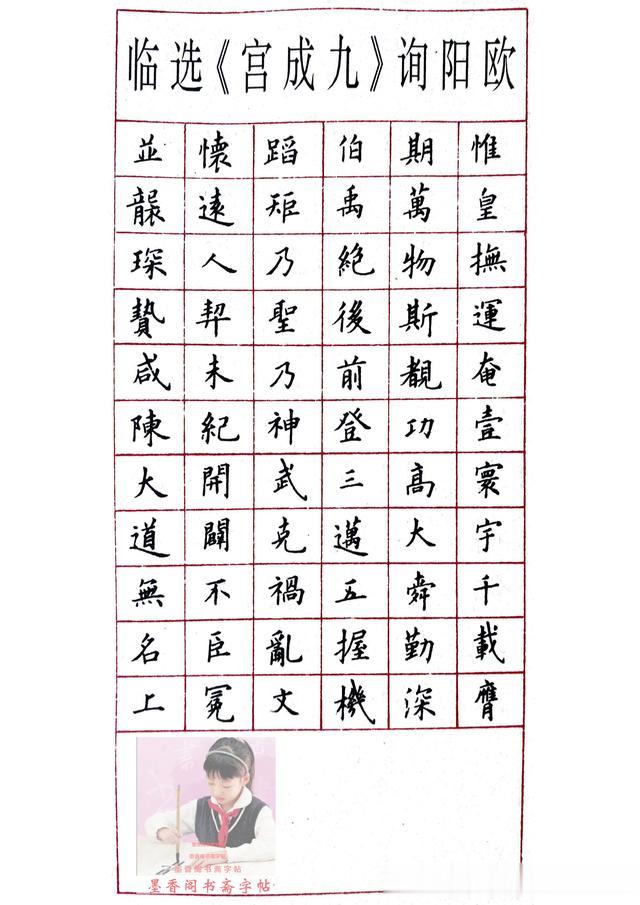 欧阳询《九成宫》选临
惟皇撫運奄壹寰宇千載膺
期萬物斯覩功高大舜勤深
伯禹絶後前登三邁五握機
蹈矩乃聖乃神武克禍亂文
懷遠人契未紀開闢不臣冕
並襲琛贄咸陳大道無名上
墨香阁书斋字帖
墨香阁书斋字帖